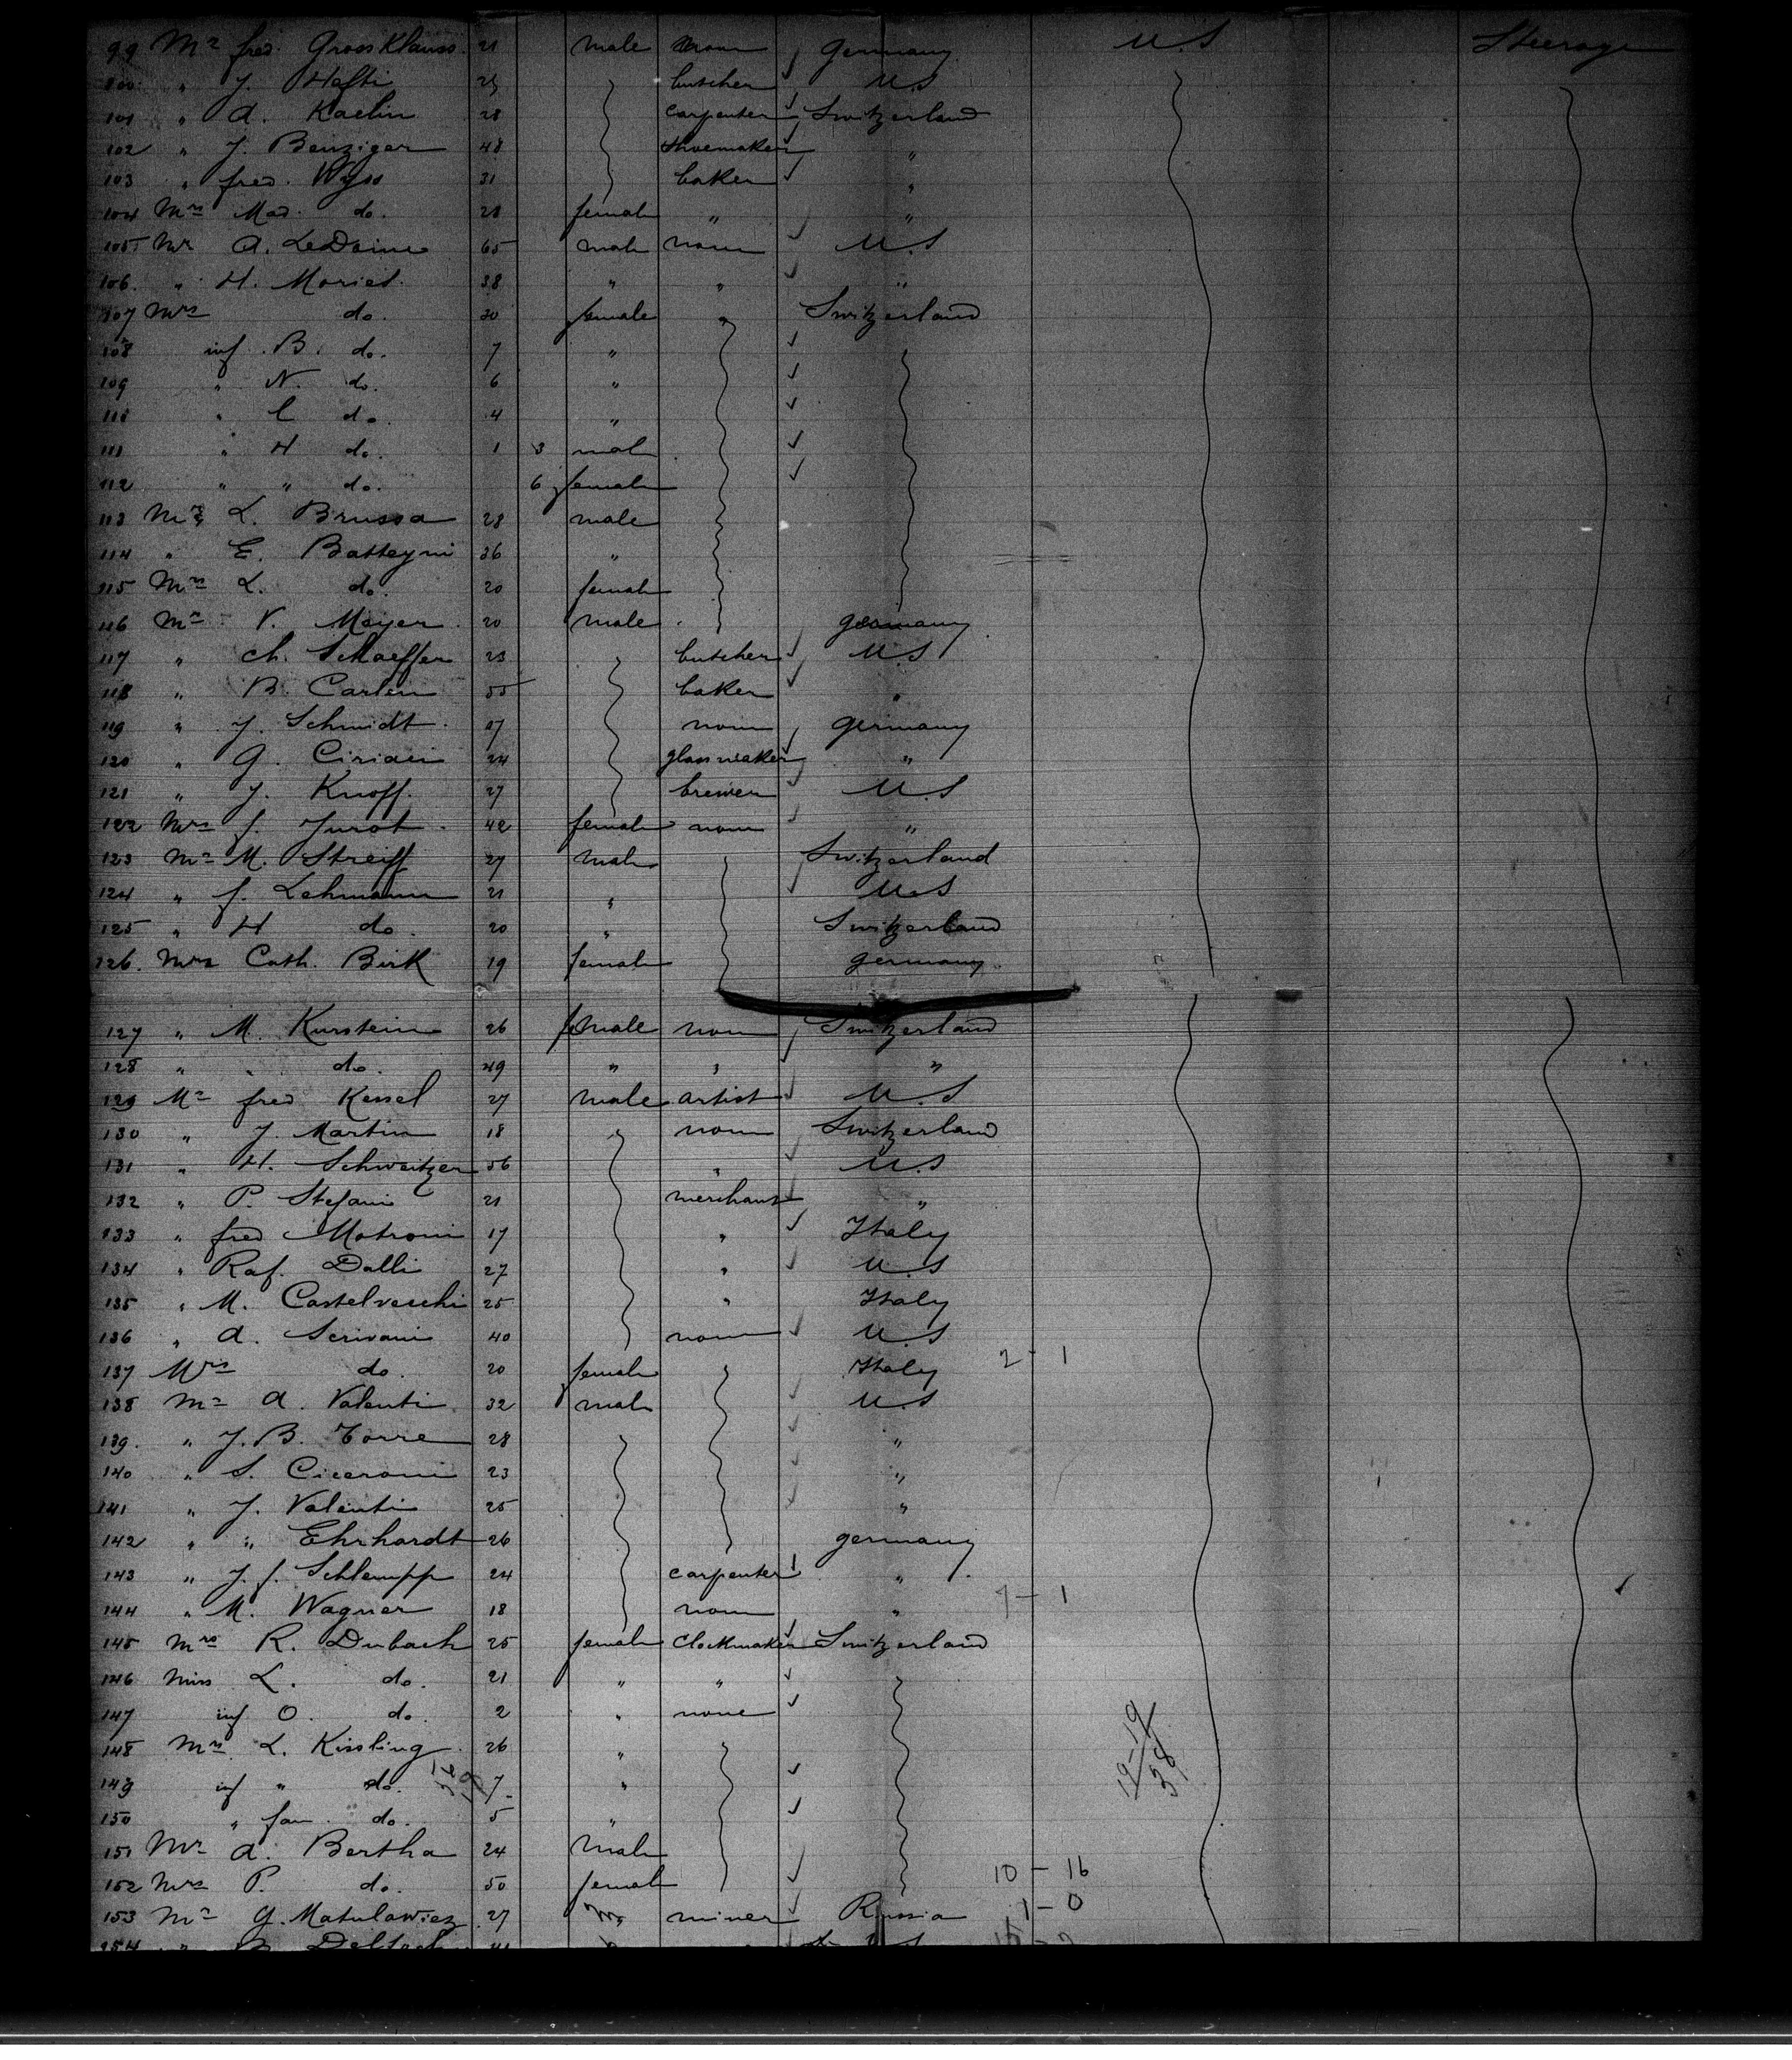 99 Mr fred. Grossklauss 21 male none Germany U.S Steerage
100 " J. Hefti 25 butcher U.S
101 " A. Kaelin 28 carpenter Switzerland
102 " J. Benziger 48 shoemaker "
103 " fred. Wyss 31 baker "
104 Mrs Mad. do. 28 female " "
105 Mr A. LeDoime 65 male none U.S
106. " H. Moriet. 38 " " "
107 Mrs do. 30 female " Switzerland
108 inf. B. do. 7 "
109 " N. do. 6 "
110 " C do. 4 "
111 " H do. 1 3 male
112 " " do. 6 female
113 Mr L. Brussa 28 male
114 " E. Batteyni 36 "
115 Mrs L. do. 20 female
116 Mr V. Mayer 20 male germany
117 " Ch. Schaeffer 23 butcher U.S
118 " B. Carlen 55 baker "
119 " J. Schmidt 27 none Germany
120 " G. Ciriani 24 glass maker "
121 " J. Knoff. 27 brewer U.S
122 Mrs J. Jurot 42 female none "
123 Mr M. Streiff 27 male Switzerland
124 " J. Lehmann 21 " U.S
125 " H do. 20 " Switzerland
126. Mrs Cath. Birk 19 female germany
127 " M. Kurstein 26 female none Switzerland
128 " " do. 49 " " "
129 Mr fred Kessel 27 male artist U.S
130 " J. Martin 18 " none Switzerland
131 " H. Schweitzer 56 " U.S
132 " P. Stefani 21 merchant "
133 " fred Motroni 17 " Italy
134 " Raf. Dalli 27 " U.S
135 " M. Castelvecchi 25 " Italy
136 " A. Scrivani 40 none U.S
137 Mrs do. 20 female Italy 2 - 1
138 Mr A. Valenti 32 male U.S
139. " J. B. Torre 28 "
140 " S. Ciceroni 23 "
141 " J. Valenti 25 "
142 " " Ehrhardt 26 germany
143 " J. J. Schlumpp 24 carpenter "
144 " M. Wagner 18 none " 7 - 1
145 Mrs R. Dubach 25 female Clockmaker Switzerland
146 Miss L. do. 21 " "
147 inf O. do. 2 " none
148 Mrs L. Kissling 26 " 19-19
149 inf " do. 7 " 38
150 " fan. do. 5 "
151 Mr A. Bertha 24 male
152 Mrs P. do. 50 female 10 - 16
153 Mr G. Matulawiez 27 m miner Russia 1 - 0
154